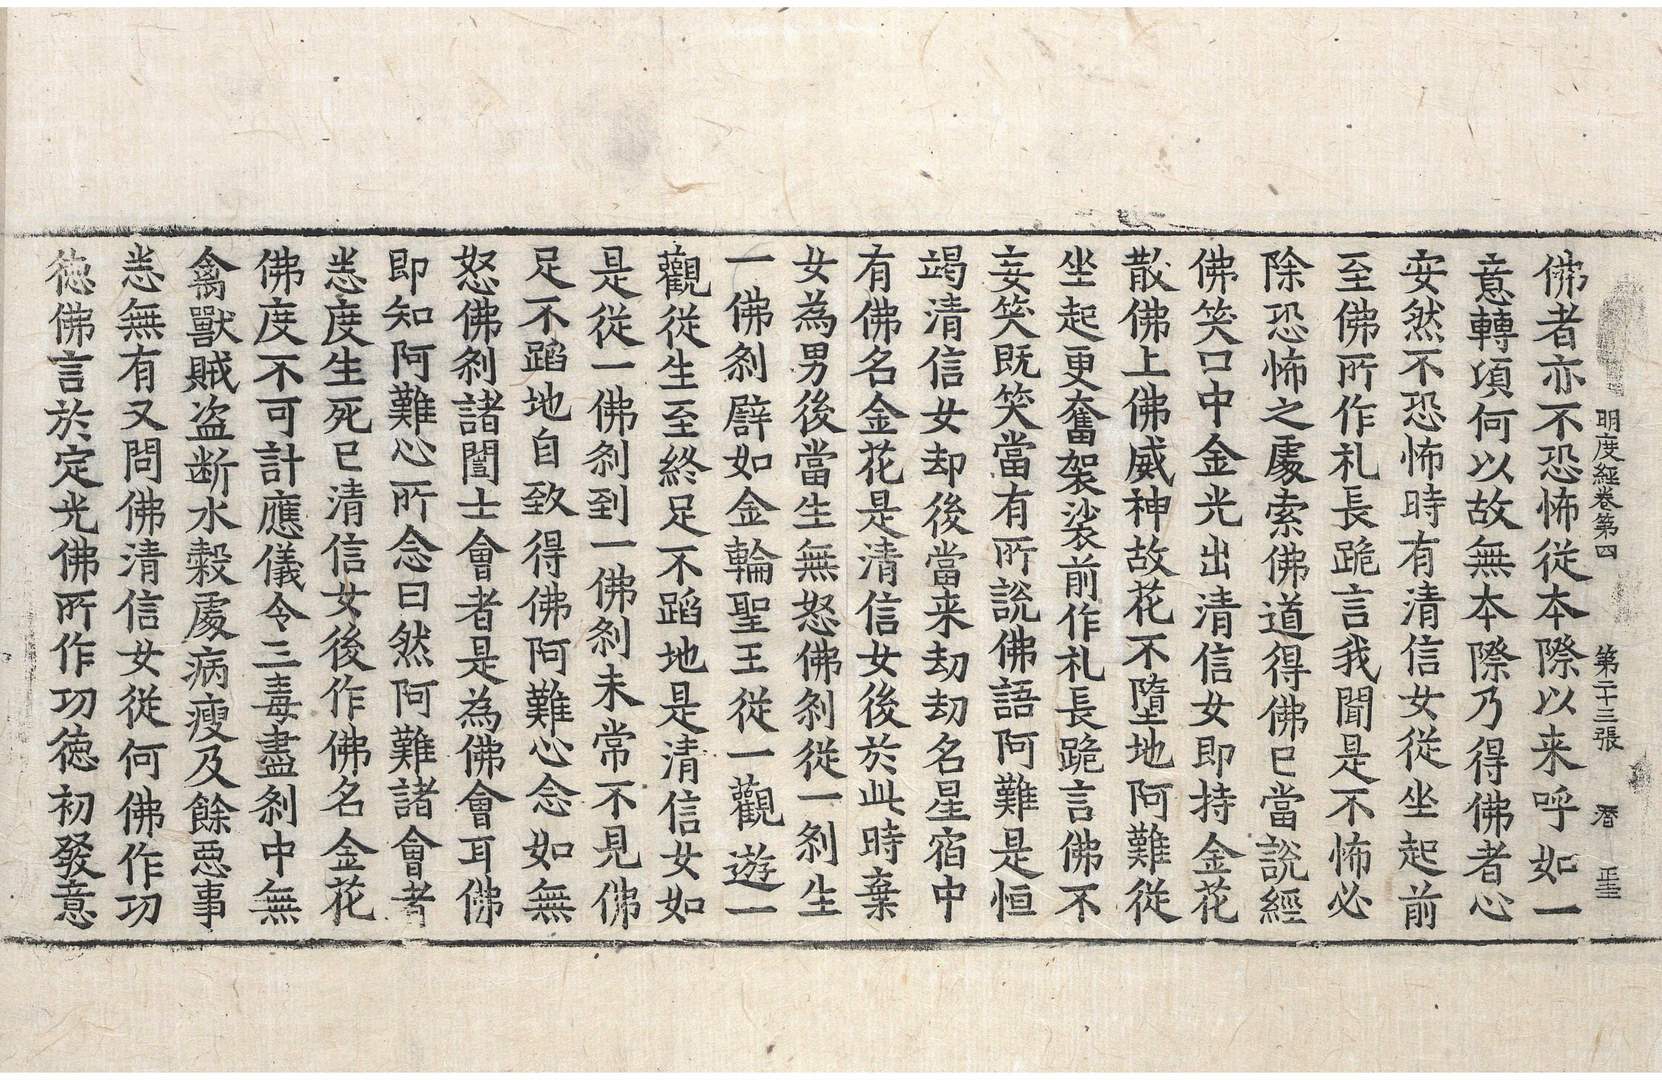 明度經卷第四　第二十三張　㬱　正主
佛者亦不恐怖從本際以来呼如一
意轉項何以故無本際乃得佛者心
安然不恐怖時有清信女從坐起前
至佛所作礼長跪言我聞是不怖必
除恐怖之處索佛道得佛已當說經
佛笑口中金光出清信女即持金花
散佛上佛威神故花不墮地阿難從
坐起更奮袈裟前作礼長跪言佛不
妄笑既笑當有所說佛語阿難是恒
竭清信女却後當来劫劫名星宿中
有佛名金花是清信女後於此時棄
女為男後當生無怒佛刹從一刹生
一佛刹譬如金輪聖王從一觀遊一
觀從生至終足不蹈地是清信女如
是從一佛刹到一佛刹未常不見佛
足不蹈地自致得佛阿難心念如無
怒佛刹諸闓士會者是為佛會耳佛
即知阿難心所念曰然阿難諸會者
悉度生死已清信女後作佛名金花
佛度不可計應儀令三毒盡刹中無
禽獸賊盗断水穀處病瘦及餘惡事
悉無有又問佛清信女從何佛作功
徳佛言於定光佛所作功徳初發意